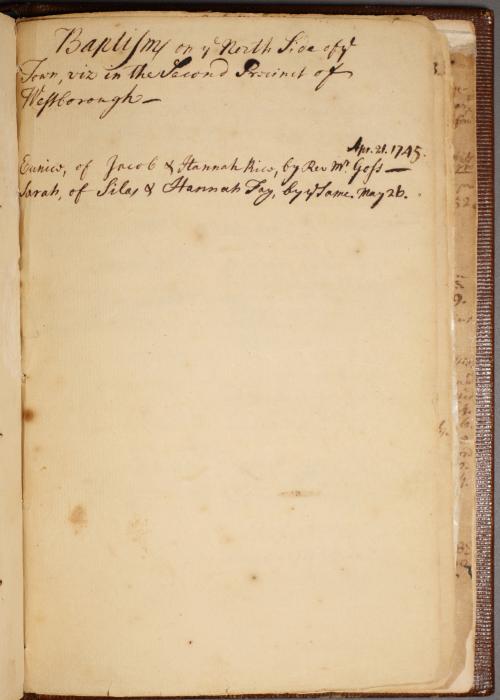 Baptisms on yᵉ North Side of yᵉ
Town, viz in the Second Precinct of
Westborough—
Apr. 21. 1745.
Eunice, of Jacob & Hannah Rice, by Rev Mr. Goss—
Sarah, of Silas & Hannah Fay, by yᵉ Same. May 26.